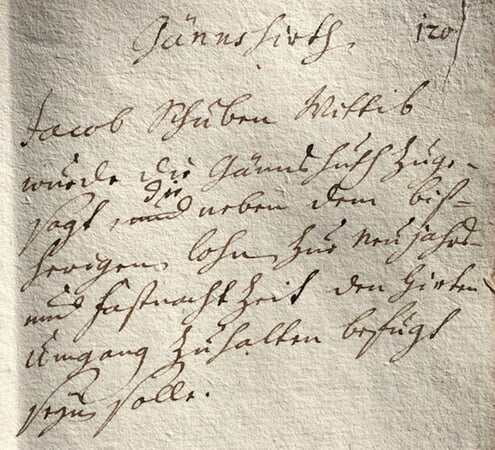 Gännshirth. 120
Jacob Schuben Wittib
wurde die Gännshuth zuge-
sagt, die und neben dem bis-
herigen lohn zur neu jahrs
und fastnacht Zeit den Hirten
Umgang zuhalten befugt
seyn solle.